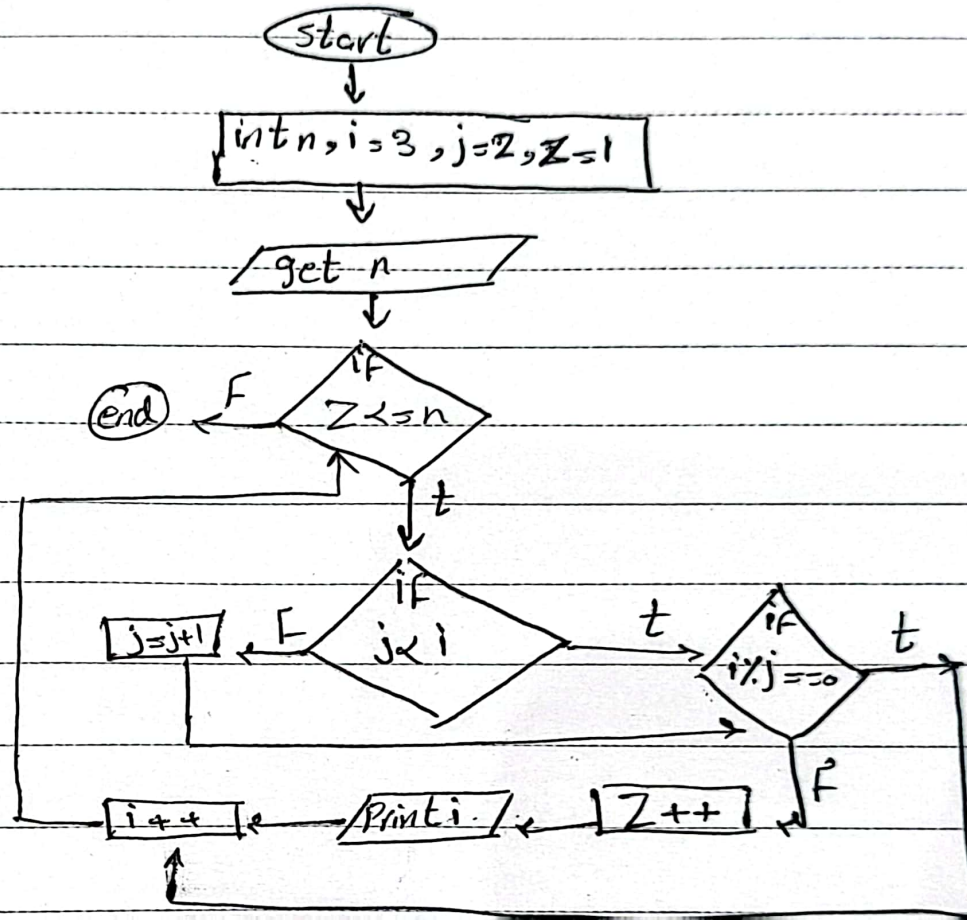 start
int n, i=3, j=2, z=1
get n
if
Z<=n
F
end
t
if
j<i
F
j=j+1
t
if
i%j==0
t
F
Z++
Print i.
i++